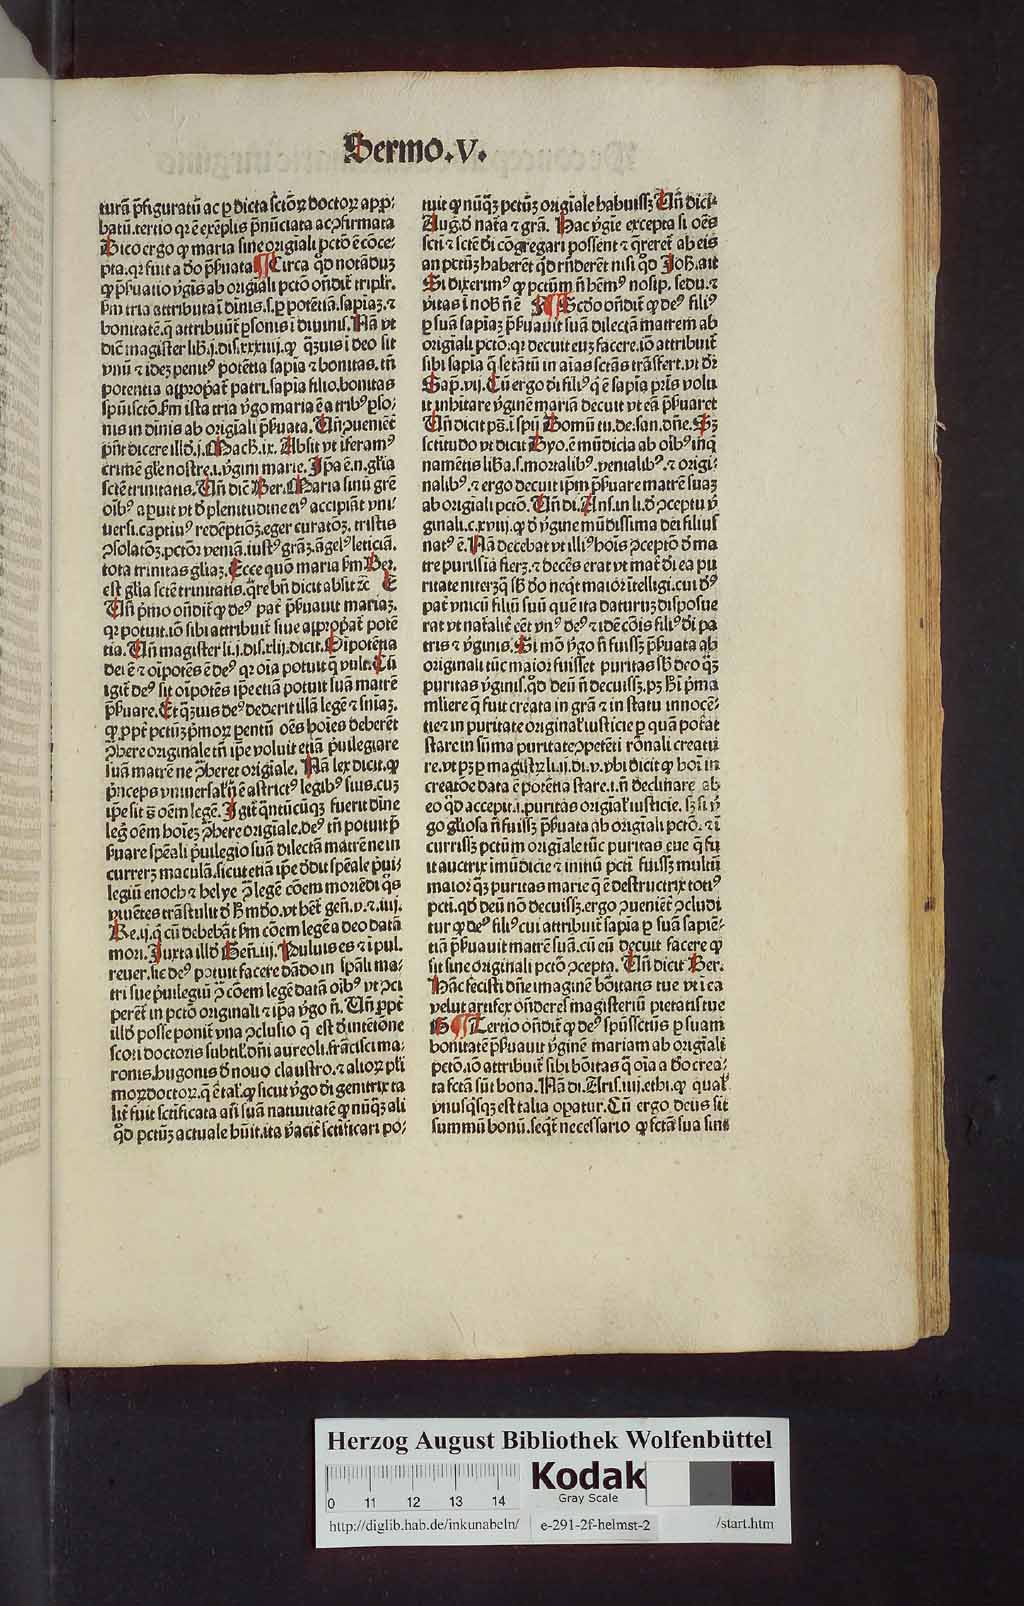 Sermo.V.
turā p̄figuratū ac ꝑ dicta sctōꝝ doctoꝝ appꝛ-
batū.tertio qꝛ ē exēplis p̄nūciata ac ꝯfirmata
Dico ergo ꝙ maria sine originali pctō ē cōce-
pta.qꝛ fuit a dō p̄ẜuata ¶ Circa qd̄ notāduꝫ
ꝙ p̄ẜuatio v̄gis ab originali pctō ondit̄ triplr̄.
ẜm tria attributa ī diuis.s.ꝑ potētiā.sapiaꝫ.⁊
bonitatē.q̄ attribuūt̄ ꝑsonis ī diuinis.Nā vt
dic̄ magister lib̄.j.dis.xxxiiij.ꝙ qꝫuis ī deo sit
vnū ⁊ ideꝫ penitꝰ potētia sapīa ⁊ bonitas.tn̄
potentia appropat̄ patri.sapia filio.bonitas
spūisctō.ẜm ista tria v̄go maria ē a tribꝰ ꝑso-
nis in diuis ab originali p̄ẜuata.Un̄ ꝯueniēt̄
pn̄t dicere illd̄.j.Mach̄.ix.Absit vt īferamꝰ
crimē glē nostre.i.v̄gini marie.Ip̄a ē.n.gl̄ia
sctē trinitatis.Un̄ dic̄ Ber.Maria sinū grē
oībꝰ aꝑuit vt d̄ plenitudine eiꝰ accipiāt vni-
uersi.captiuꝰ redēptiōꝫ.eger curatōꝫ.tristis
ꝯsolatōꝫ.pctōꝛ veniā.iustꝰ grāꝫ.āgelꝰ leticiā.
tota trinitas gliaꝫ.Ecce quō maria ẜm Ber.
est gl̄ia sctē trinitatis.q̄re bn̄ dicit absit ꝛc̄ E
Un̄ p̄mo ondit̄ ꝙ deꝰ pat̄ p̄ẜuauit mariaꝫ.
qꝛ potuit.iō sibi attribuit̄ siue appropat̄ potē
tia.Un̄ magister li.j.dis.xlij.dicit.Oīpotētia
dei ē ⁊ oīpotēs ē deꝰ qꝛ oīa potuit q̄ vult.Cū
igit̄ deꝰ sit oīpotēs ipe etiā potuit suā matrē
p̄ẜuare.Et qꝫuis deꝰ dederit illā legē ⁊ sniaꝫ.
ꝙ ꝓpt̄ pctūꝫ p̄moꝝ parentū oēs hoīes deberēt
ꝯ̄here originale tn̄ ip̄e voluit etiā p̄uilegiare
suā matrē ne ꝯ̄heret origiale.Nā lex dicit.ꝙ
p̄nceps vniuersal'ꝯ̄ ē astrictꝰ legibꝰ suis.cuꝫ
ip̄e sit s̄ oēm legē.Igit̄ qn̄tūcūqꝫ fuerit dīne
leḡ oēm hoīeꝫ ꝯ̄here origiale.deꝰ tn̄ potuit p̄
ẜuare spēali p̄uilegio suā dilectā matrē ne in
currerꝫ maculā.sicut etiā ip̄e ꝯ̄dit spēale p̄ui-
legiū enoch ⁊ helye ꝯ̄ legē cōem moriēdi q̄s
viuētes trāstulit d̄ ẜ mdo.vt het̄ gen̄.v.⁊.iiij.
Re.ij.q̄ cū debebāt ẜm cōem legē a deo datā
mori.Iuxta illd̄ Gen̄.iij.Puluis es ⁊ ī pul.
reuer.sic deꝰ potuit facere dādo in spāli ma-
tri sue p̄uilegiū ꝯ̄ cōem legē datā oībꝰ vt ꝯci
perēt̄ in pctō originali ⁊ ip̄a v̄go n̄.Un̄ ꝓpt̄
illd̄ posse ponit̄ vna ꝯclusio q̄ est d̄ intētione
scori doctoris subtil'.dn̄i aureoli.frācisci ma-
ronis.hugonis d̄ nouo claustro.⁊ alioꝝ plī
moꝝ doctoꝝ.q̄ ē tal'.ꝙ sicut v̄go dī genitrix ta
lit̄ fuit sctificata an̄ suā natiuitatē ꝙ nūqꝫ ali
qd̄ pctūꝫ actuale huīt.ita v̄acit̄ sctificari po-
tuit ꝙ nūqꝫ pctūꝫ origiale habuissꝫ Un̄ dicit
Aug.d̄ nat̄a ⁊ grā.Hac v̄gīe excepta si oēs
scti ⁊ sctē dī cōgregari possent ⁊ q̄reret̄ ab eis
an pctūꝫ haberēt qd̄ rn̄derēt nisi qd̄ Joh̄.ait
Si dixerimꝰ ꝙ pctūm n̄ hēmꝰ nosip.sedu.⁊
v̄itas ī nob̄ n̄ ē F ¶ Scdo ondit̄ ꝙ deꝰ filiꝰ
ꝑ suā sapiaꝫ p̄ẜuauit suā dilectā matrem ab
origīali pctō.qꝛ decuit euꝫ facere.iō attribuit̄
sibi sapīa q̄ se tātū in aīas sctās trāsfert.vt dꝛ
Sap̄.vij.Cū ergo dī filiꝰ q̄ ē sapīa pris volu
it inhītare v̄ginē mariā decuit vt eā p̄ẜuaret
Un̄ dicit pṡ.ī spū Domū tu.de.san.dn̄e.Sꝫ
sctitudo vt dicit Dyo.ē mūdicia ab oībꝰ inq̄
namētis lib̄a.s.mortalibꝰ.venialibꝰ.⁊ origi-
nalibꝰ.⁊ ergo decuit ip̄m p̄ẜuare matrē suaꝫ
ab origiali pctō.Un̄ di.Ans.in li.d̄ ꝯceptu v̄
ginali.c.xviij.ꝙ d̄ v̄gine mūdissima dei filius
natꝰ ē.Nā decebat vt illiꝰ hoīs ꝯceptō d̄ ma
tre purissīa fierꝫ.⁊ decēs erat vt mat̄ dī ea pu
ritate niterꝫq̄ sb̄ dō neqt̄ maior ītelligi.cui dꝰ
pat̄ vnicū filiū suū quē ita daturꝫ disposue
rat vt natałit̄ eēt vnꝰ deꝰ ⁊ idē cōis filiꝰ dī pa
tris ⁊ v̄ginis.Si mō v̄go n̄ fuissꝫ p̄ẜuata ab
originali tūc maior fuisset puritas sb̄ deo qꝫ
puritas v̄ginis.qd̄ deū n̄ decuissꝫ.pꝫ hī p̄ma
mliere q̄ fuit creata in grā ⁊ in statu innocē-
tie ⁊ in puritate original'iusticie ꝑ quā pot̄at
stare in sūma puritate ꝯpetēti rōnali creatu
re.vt pꝫ ꝑ magist̄ꝝ li.ij.di.v.vbi dicit ꝙ hoī in
creatōe data ē potētia stare.i.n̄ declinare ab
eo qd̄ accepit.i.puritās origial'iusticie.sꝫ si v̄
go gliosa n̄ fuissꝫ p̄ẜuata ab origīali pctō.⁊ ī
currissꝫ pctūm origīale tūc puritas eue q̄ fu
it auctrix imūdicie ⁊ initiū pcti fuissꝫ multū
maior qꝫ puritas marie q̄ ē destructrix totiꝰ
pcti.qd̄ deū nō decuissꝫ.ergo ꝯueniēt̄ ꝯcludi
tur ꝙ deꝰ filiꝰ cui attribuit̄ sapīa ꝑ suā sapiē-
tiā p̄ẜuauit matrē suā.cū eū decuit facere ꝙ
sit sine originali pctō ꝯcepta.Un̄ dicit Ber.
Hāc fecisti dn̄e imaginē bōitatis tue vt ī ea
velut artifex ondereſ magisteriū pietatis tue
G ¶ Tertio ondit̄ ꝙ deꝰ spūssctus ꝑ suam
bonitatē p̄ẜuauit v̄ginē mariam ab origīali
pctō.iō attribuit̄ sibi bōitas q̄ oīa a dō crea-
ta fctā sūt bona.Nā di.Aris.iiij.ethi.ꝙ qual'
vnusq̄sqꝫ est talia oꝑatur.Cū ergo deus sit
summū bonū.seqt̄ necessario ꝙ fctā sua sint
Herzog August Bibliothek Wolfenbüttel
0 11 12 13 14
Kodak
Gray Scale
http://diglib.hab.de/inkunabeln/ e-291-2f-helmst-2 /start.htm